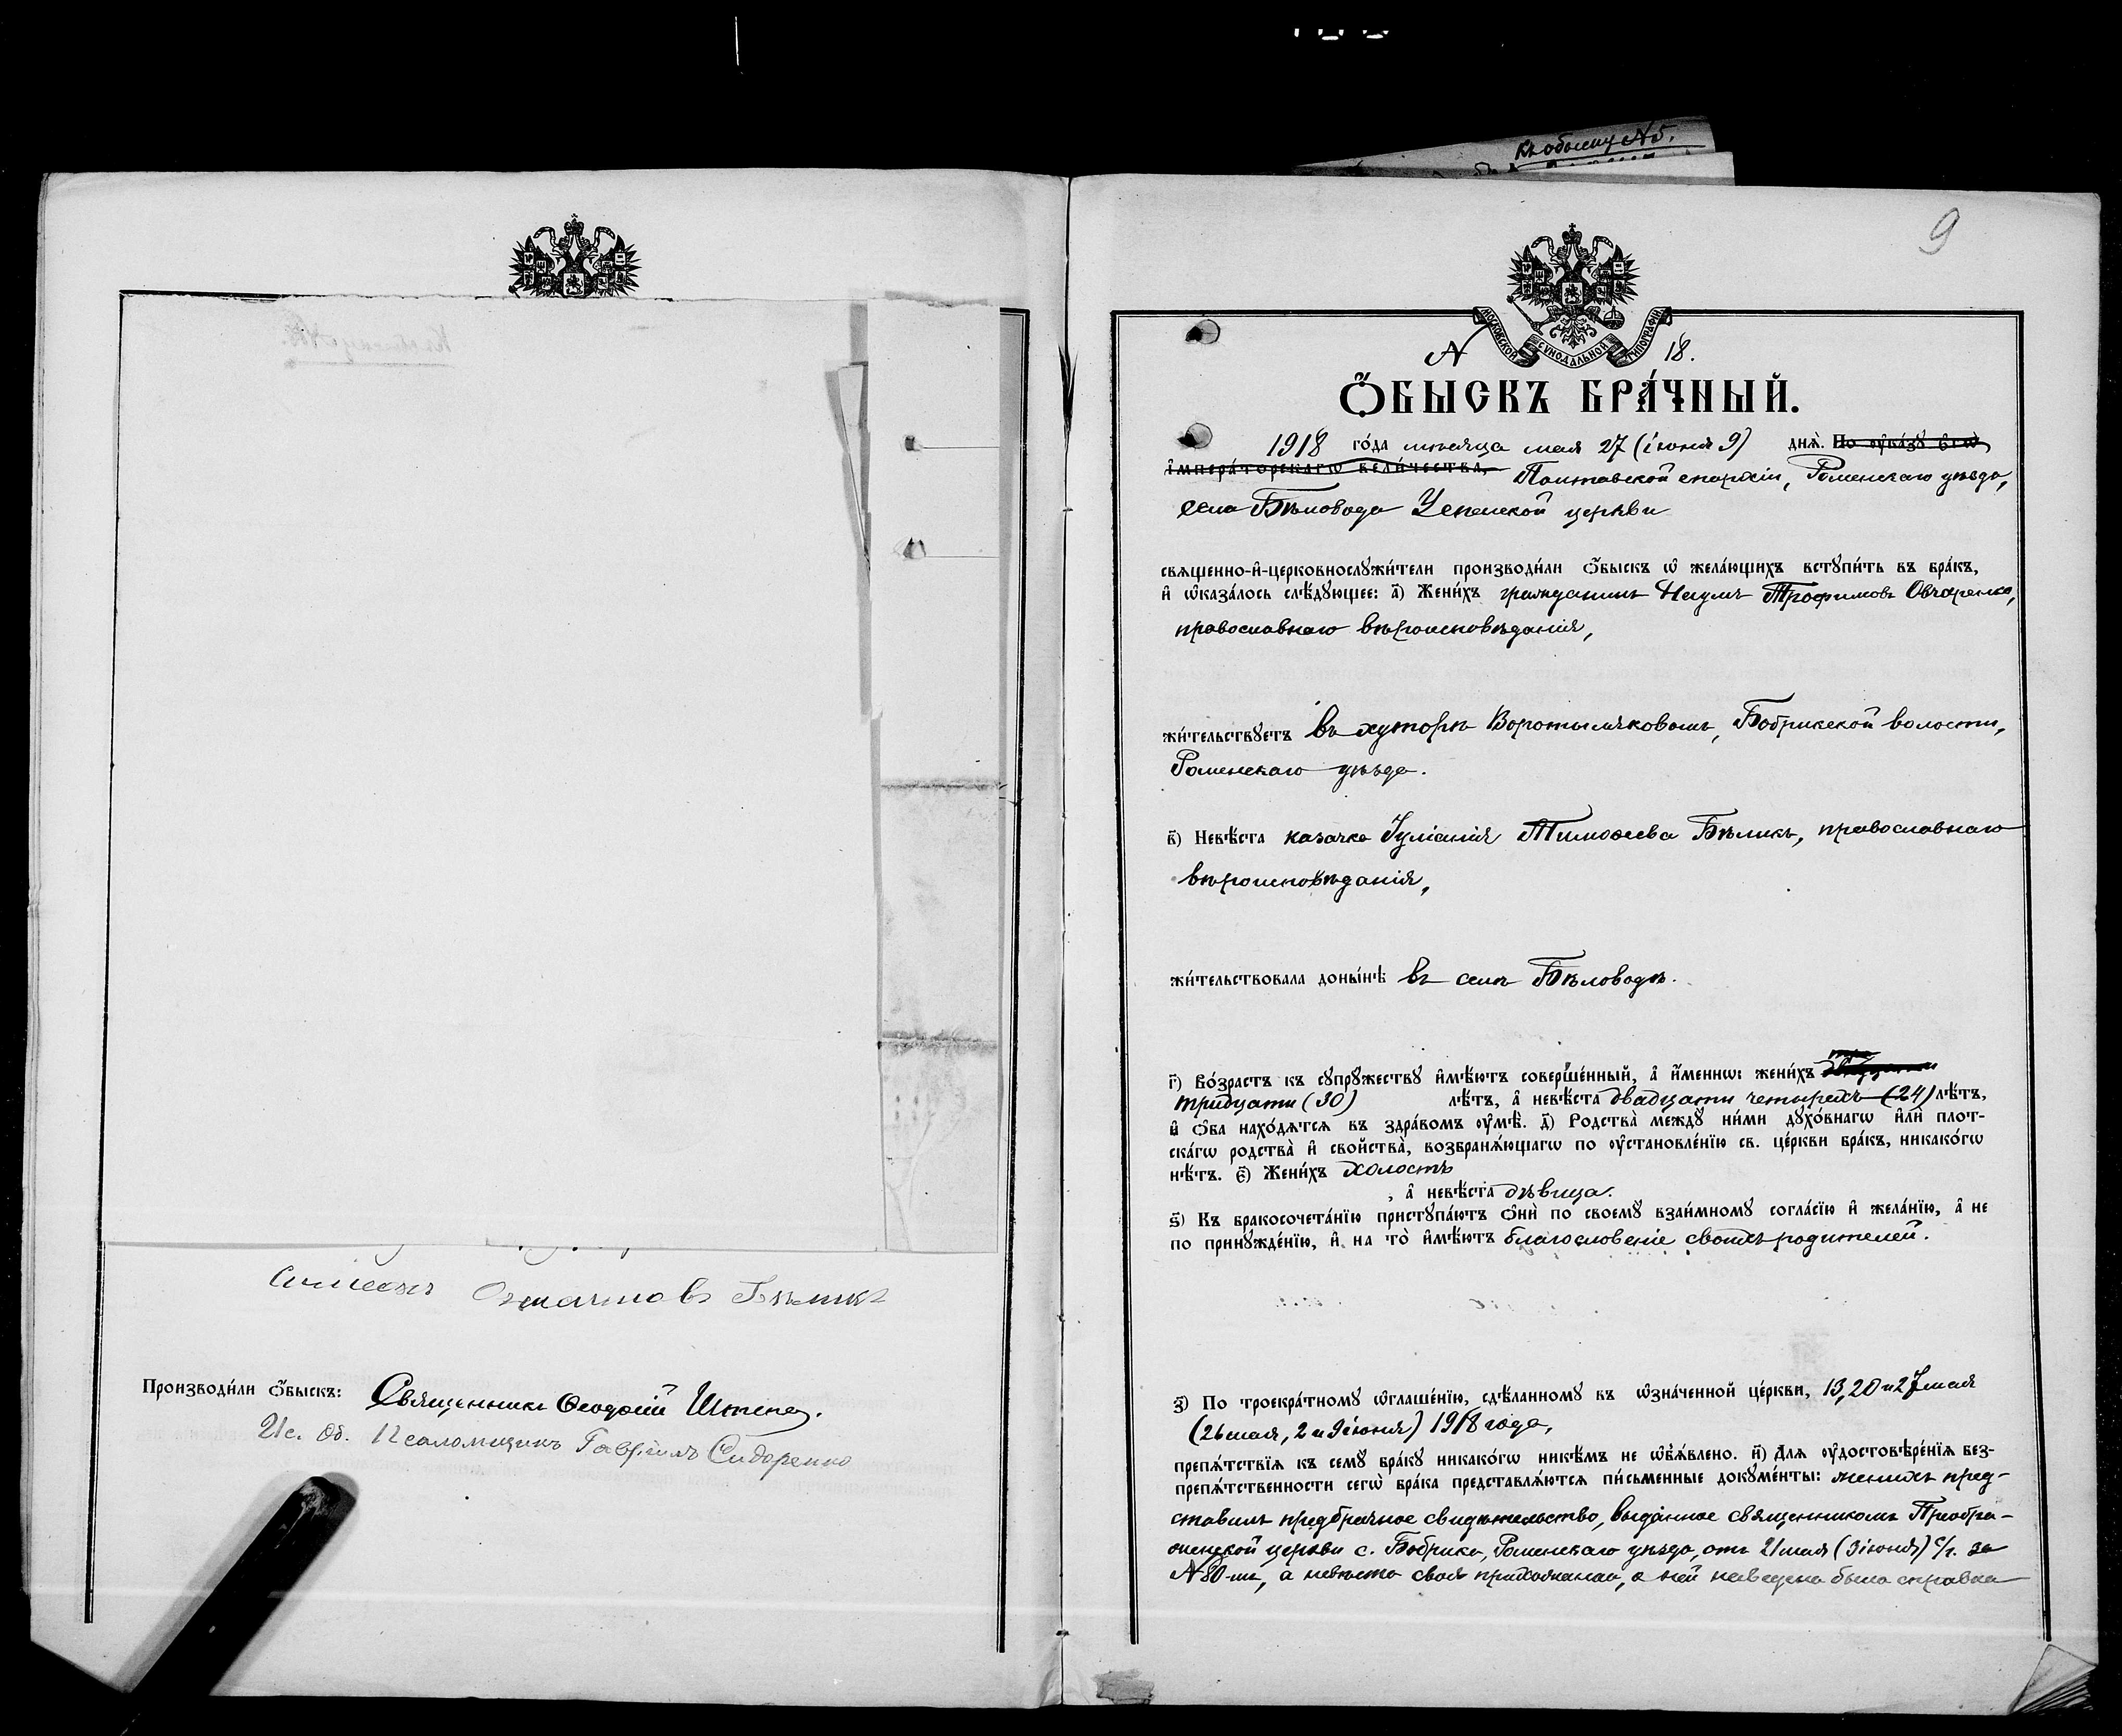 Къ обыску №5.
Симеонъ Бѣликъ
Произвoди́ли ѻ҆́быскъ: Священникъ Ѳеодосій
21 с. Об. Псаломщикъ Гавріилъ Сидоренко
9
МОСКОВСКОЙ СѴНОДАЛЬНОЙ ТИПОГРАФІИ
№ 18.
Ѻ҆́БЫСКЪ БРА́ЧНЫЙ.
1918 го́да мѣсяца мая 27 (іюня 9) днѧ̀. По ᲂу҆ка́зꙋ є҆гѡ̀
і҆мпера́торскагѡ вели́чества, Полтавской епархіи, Роменскаго уѣзда,
села Бѣловода Успенской церкви
свѧщенно-и҆-церковнослꙋжи́тели производи́ли ѻ҆́быскъ ѡ҆ жела́ющихъ встꙋпи́ть въ бра́къ,
и҆ ѡ҆каза́лось слѣ́дꙋющее: а҃) Жени́хъ гражданинъ Наумъ Трофимовъ Овчаренко,
православнаго вѣроисповѣданія,
жи́тельствꙋетъ въ хуторѣ Воротыляковомъ, Бобрикской волости,
Роменскаго уѣзда.
в҃) Невѣ́ста казачка Іуліанія Тимоѳеева Бѣликъ, православнаго
вѣроисповѣданія,
жи́тельствовала доны́нѣ въ селѣ Бѣловодѣ.
г҃) Во́зрастъ къ сꙋпрꙋ́жествꙋ и҆мѣ́ютъ соверше́нный, а҆ и҆́меннѡ: жени́хъ
тридцати (30) лѣ́тъ, а҆ невѣ́ста двадцати четырехъ (24) лѣ́тъ,
и҆ ѻ҆́ба нахо́дѧтсѧ въ здра́вомъ ᲂу҆мѣ̀. д҃) Родства̀ междꙋ̀ ни́ми дꙋхо́внагѡ и҆лѝ плот-
ска́гѡ родства̀ и҆ свойства̀, возбранѧ́ющагѡ по ᲂу҆становле́нїю св. це́ркви бра́къ, никако́гѡ
нѣ́тъ. є҃) Жени́хъ холостъ
, а҆ невѣ́ста дѣвица.
ѕ҃) Къ бракосочета́нїю пристꙋпа́ютъ ѻ҆нѝ по своемꙋ̀ взаи́мномꙋ согла́сїю и҆ жела́нїю, а҆ не
по принꙋжде́нїю, и҆ на то̀ и҆мѣ́ютъ благословеніе своихъ родителей.
з҃) По троекра́тномꙋ ѡ҆глаше́нїю, сдѣ́ланномꙋ въ ѡ҆зна́ченной це́ркви, 13, 20 и 27 мая
(26 мая, 2 и 9 іюня) 1918 года,
препѧ́тствїѧ къ семꙋ̀ бра́кꙋ никако́гѡ никѣ́мъ не ѡ҆б̾ѧ́влено. и҃) Для ᲂу҆достовѣре́нїѧ без-
препѧ́тственности сегѡ̀ бра́ка представлѧ́ютсѧ пи́сьменные докꙋме́нты: женихъ пред-
ставилъ предбрачное свидѣтельство, выданное священникомъ Преобра-
женской церкви с. Бобрика, Роменскаго уѣзда, отъ 21 мая (3 іюня) с/г. за
№80-мъ, а невѣста своя прихожанка, о ней наведена была справка